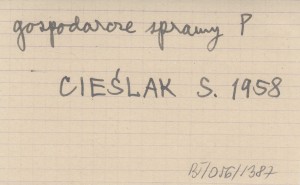 gospodarcze sprawy P
CIEŚLAK S. 1958
BJ/056/1387